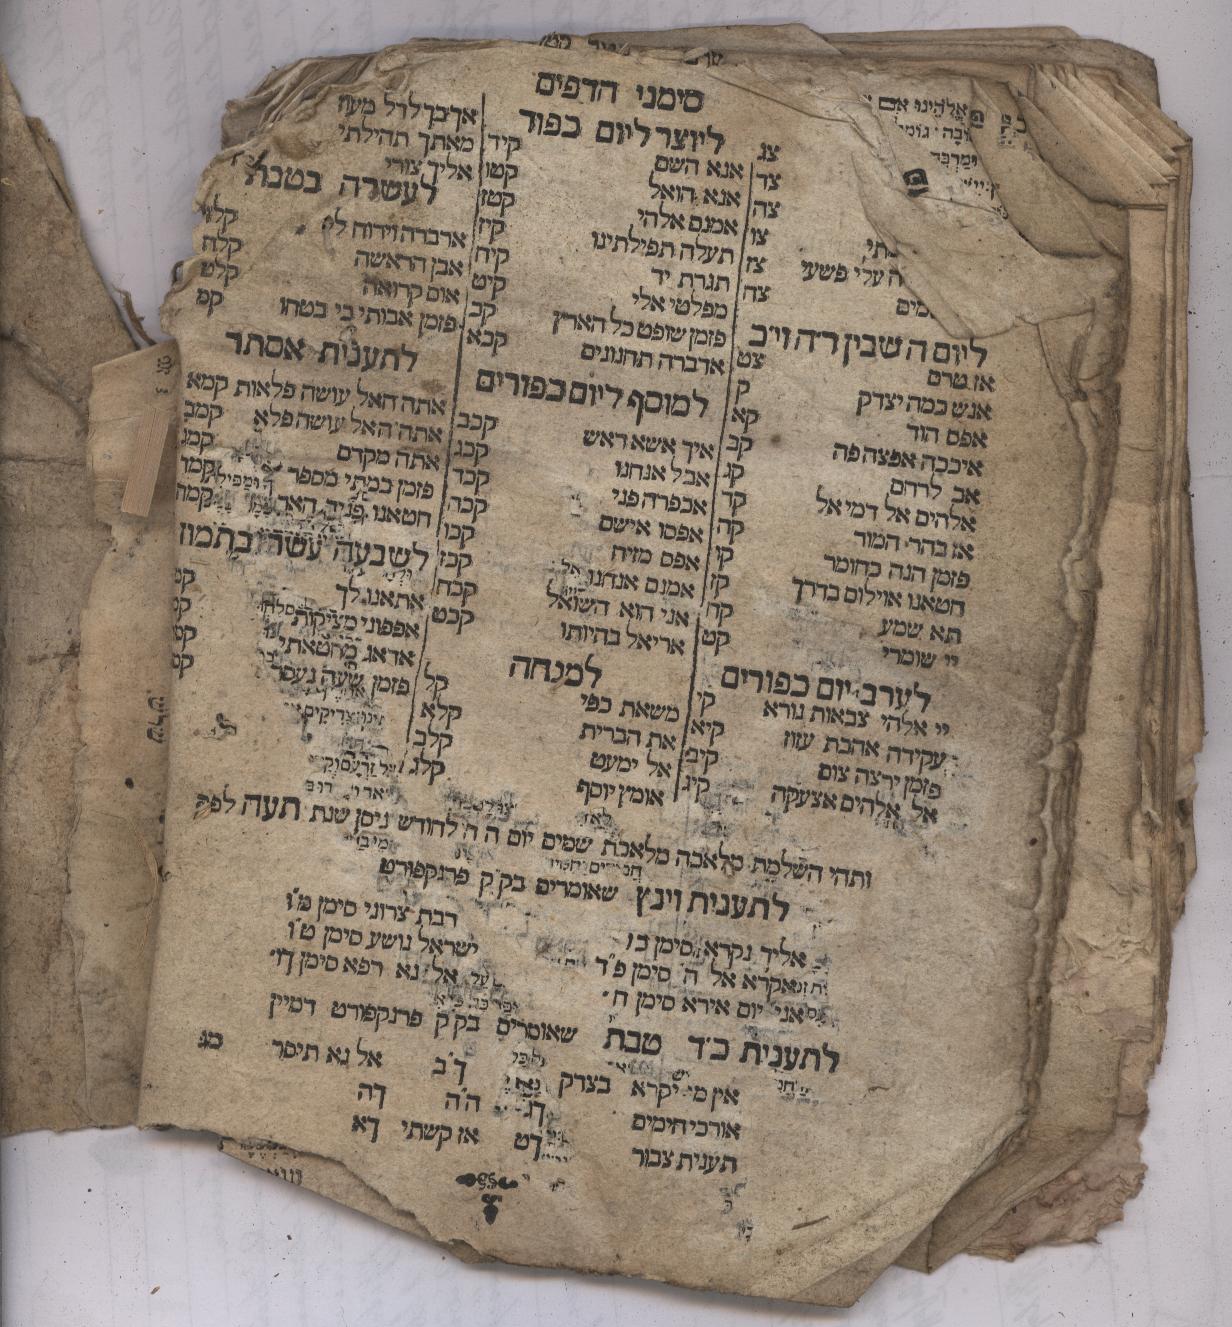 סימני הדפים
תי
ה עלי פשעי
מים
ליום ה שבין ר״ה וי״כ
אז טרם
אנש במה יצדק
אפס הוד
איככה אפצה פה
אב לרחם
אלהים אל דמי אל
אז בהר המור
פזמן הנה כחומר
חטאנו אוילום בדרך
תא שמע
יי שומרי
לערב יום כפורים
יי אלהי צבאות נורא
עקידה אהבת עזוז
פזמן ירצה צום
אל אלהים אצעקה
צג
צד
צה
צו
צז
צח
צט
ק
קא
קב
קג
קד
קה
קו
קז
קח
קט
קי
קיא
קיב
קיג
ליוצר ליום כפור
אנא השם
אנא הואל
אמנם אלהי
תעלה תפילתינו
תגרת יד
מפלטי אלי
פזמן שופט כל הארץ
אדברה תחנונים
למוסף ליום כפורים
איך אשא ראש
אבל אנחנו
אכפרה פני
אפסו אישם
אפס מזיח
אמנם אנחנו
אני הוא השואל
אריאל בהיותו
למנחה
משאת כפי
את הברית
אל ימעט
אומץ יוסף
קיד
קטו
קטז
קיז
קיח
קיט
קכ
קכא
קכב
קכג
קכד
קכה
קכו
קכז
קכח
קכט
קל
קלא
קלב
קלג
מאתך תהילתי
אליך צורי
לעשרה בטבת
אדברה וירוח לי
אבן הראשה
אום קרואה
פזמן אבותי כי בטחו
קלח
קלט
קמ
לתענית אסתר
אתה האל עושה פלאות קמא
אתה האל עושה פלא קמב
אתה מקדם קמג
פזמן במתי מספר
חטאנו
לשבעה עשר בתמוז
אתאנו לך
אפפוני מצוקות
אדאג מחטאתי
פזמן שעה נעסר
ותהי השלמת מלאכה מלאכת שמים יום ה ה לחודש ניסן שנת תעה לפק
לתענית וינץ שאומרים בק״ק פרנקפורט
אליך נקרא סימן כו
אקרא אל ה סימן פ״ד
אני יום אירא סימן ח
רבת צרוני סימן מ״ו
ישראל נושע סימן ט״ו
אל נא רפא סימן
לתענית כ״ד טבת שאומרים בק״ק פרנקפורט דמיין
אין מי יקרא בצדק
אורכי חימים
תענית צבור
אל נא תיסר
אז קשתי